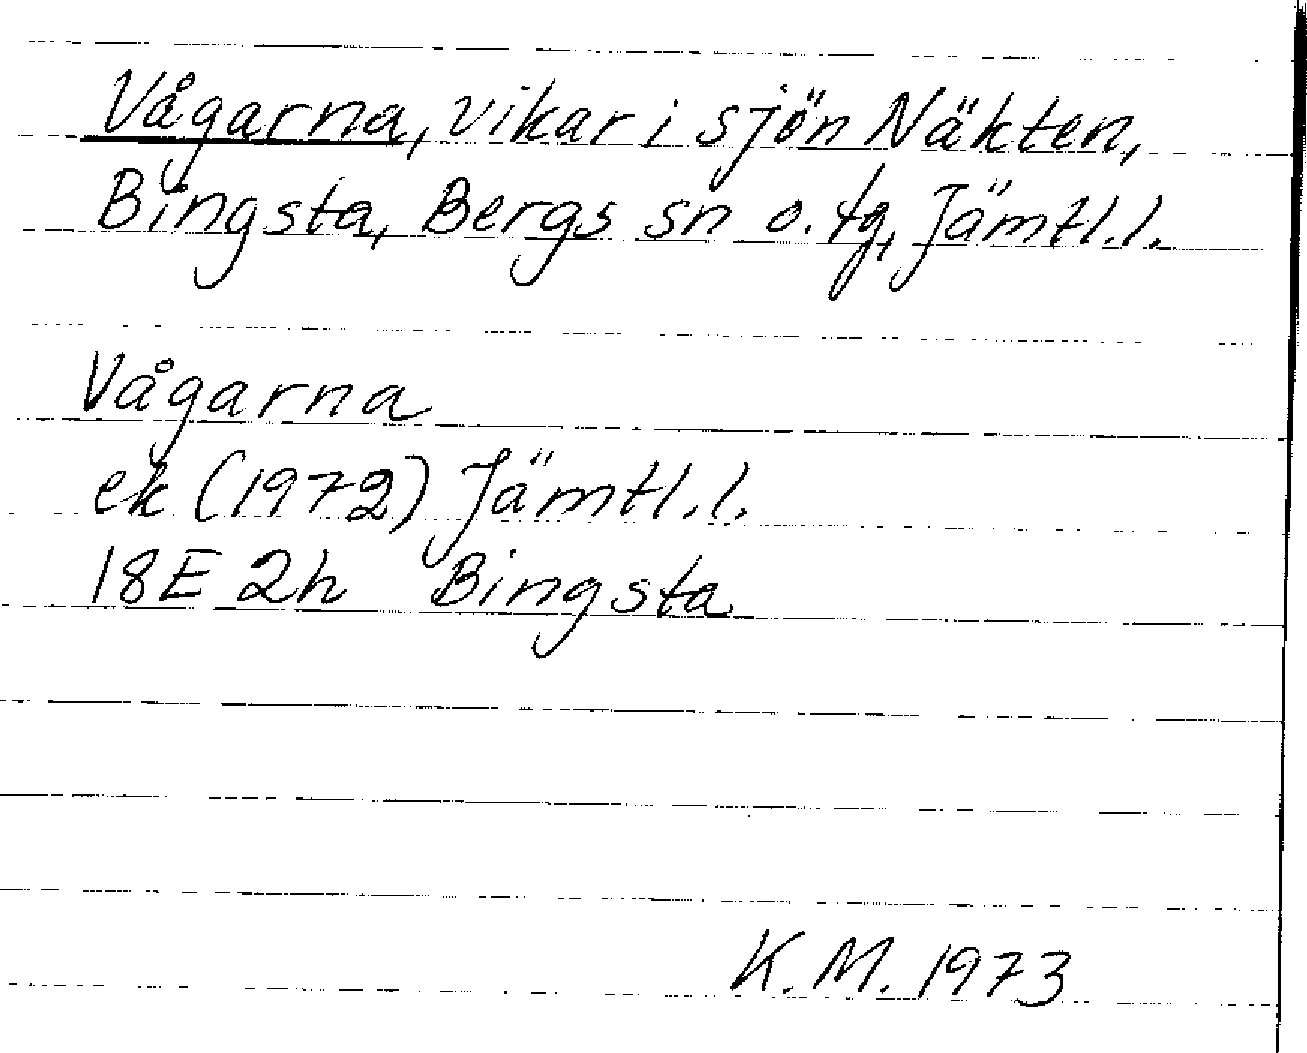 Vågarna, vikar i sjön Näkten,
Bingsta, Bergs sn o. tg, Jämtl.l.
Vågarna
ek (1972) Jämtl.l.
18E 2h Bingsta
K.M. 1973